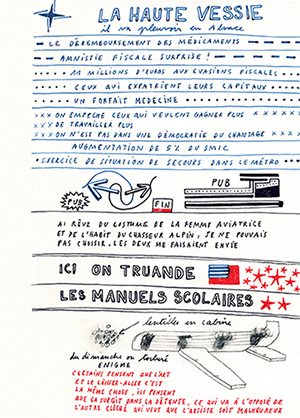 LA HAUTE VESSIE
il va pleuvoir en Alsace
LE DÉREMBOURSEMENT DES MÉDICAMENTS
AMNISTIE FISCALE SURPRISE !
11 MILLIONS D'EUROS AUX EVASIONS FISCALES
CEUX QUI EXPATRIENT LEURS CAPITAUX
UN FORFAIT MEDECINE
ON EMPECHE CEUX QUI VEULENT GAGNER PLUS
DE TRAVAILLER PLUS
ON N'EST PAS DANS UNE DÉMOCRATIE DU CHANTAGE
AUGMENTATION DE 5% DU SMIC
EXERCICE DE SITUATION DE SECOURS DANS LE MÉTRO
PUB
PUB
FIN
AI RÊVÉ DU COSTUME DE LA FEMME AVIATRICE
ET DE L'HABIT DU CHASSEUR ALPIN, JE NE POUVAIS
PAS CHOISIR, LES DEUX ME FAISAIENT ENVIE
ICI ON TRUANDE
LES MANUELS SCOLAIRES
lentilles en cabine
du dimanche on torture
ENIGME
CERTAINS PENSENT QUE L'ART
ET LE LAISSER-ALLER C'EST
LA MÊME CHOSE, ILS PENSENT
QUE ÇA SURGIT DANS LA DÉTENTE, CE QUI VA À L'OPPOSÉ DE
L'AUTRE CLICHÉ QUI VEUT QUE L'ARTISTE SOIT MALHEUREUX